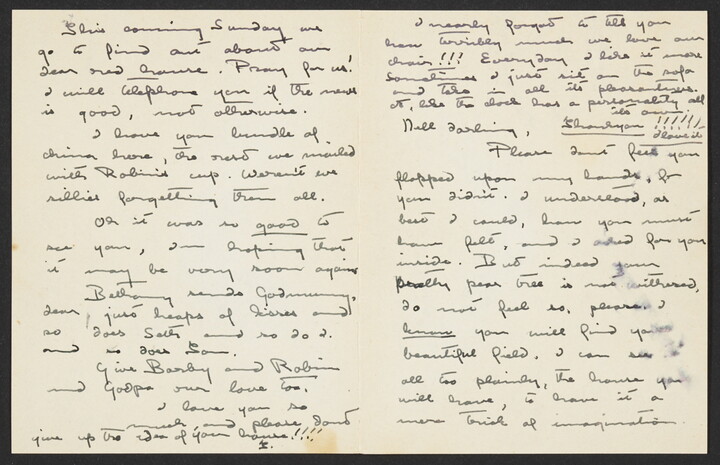 This coming Sunday we
go to find out about our
dear red house. Pray for us!
I will telephone you if the news
is good, not otherwise.
I have you bundle of
china here, the rest we mailed
with Robin's cup. Weren't we
sillies forgetting them all.
Oh it was so good to
see you, I'm hoping that
it may be very soon again
Bethany sends Godmummy,
dear, just heaps of kisses and
so does Seth and so do I.
and so does Sam.
Give Barby and Robin
and Godpa our love too.
I love you so
much, and please dont
give up the idea of your house!!!!
I nearly forgot to tell you
how terribly much we love our
chair!!! Everyday I like it more
Sometimes I just sit on the sofa
and take in all its pleasantness.
It, like the clock has a personality all
its own.
Well darling, Thankyou !!!!!!
I love it
Please dont feel you
flopped upon my hands, for
you didn't. I understood, as
best I could, how you must
have felt, and I ached for you
inside. But indeed your
pretty pear tree is not withered,
do not feel so, please. I
know you will find your
beautiful field. I can see
all too plainly, the house you
will have, to have it a
mere trick of imagination